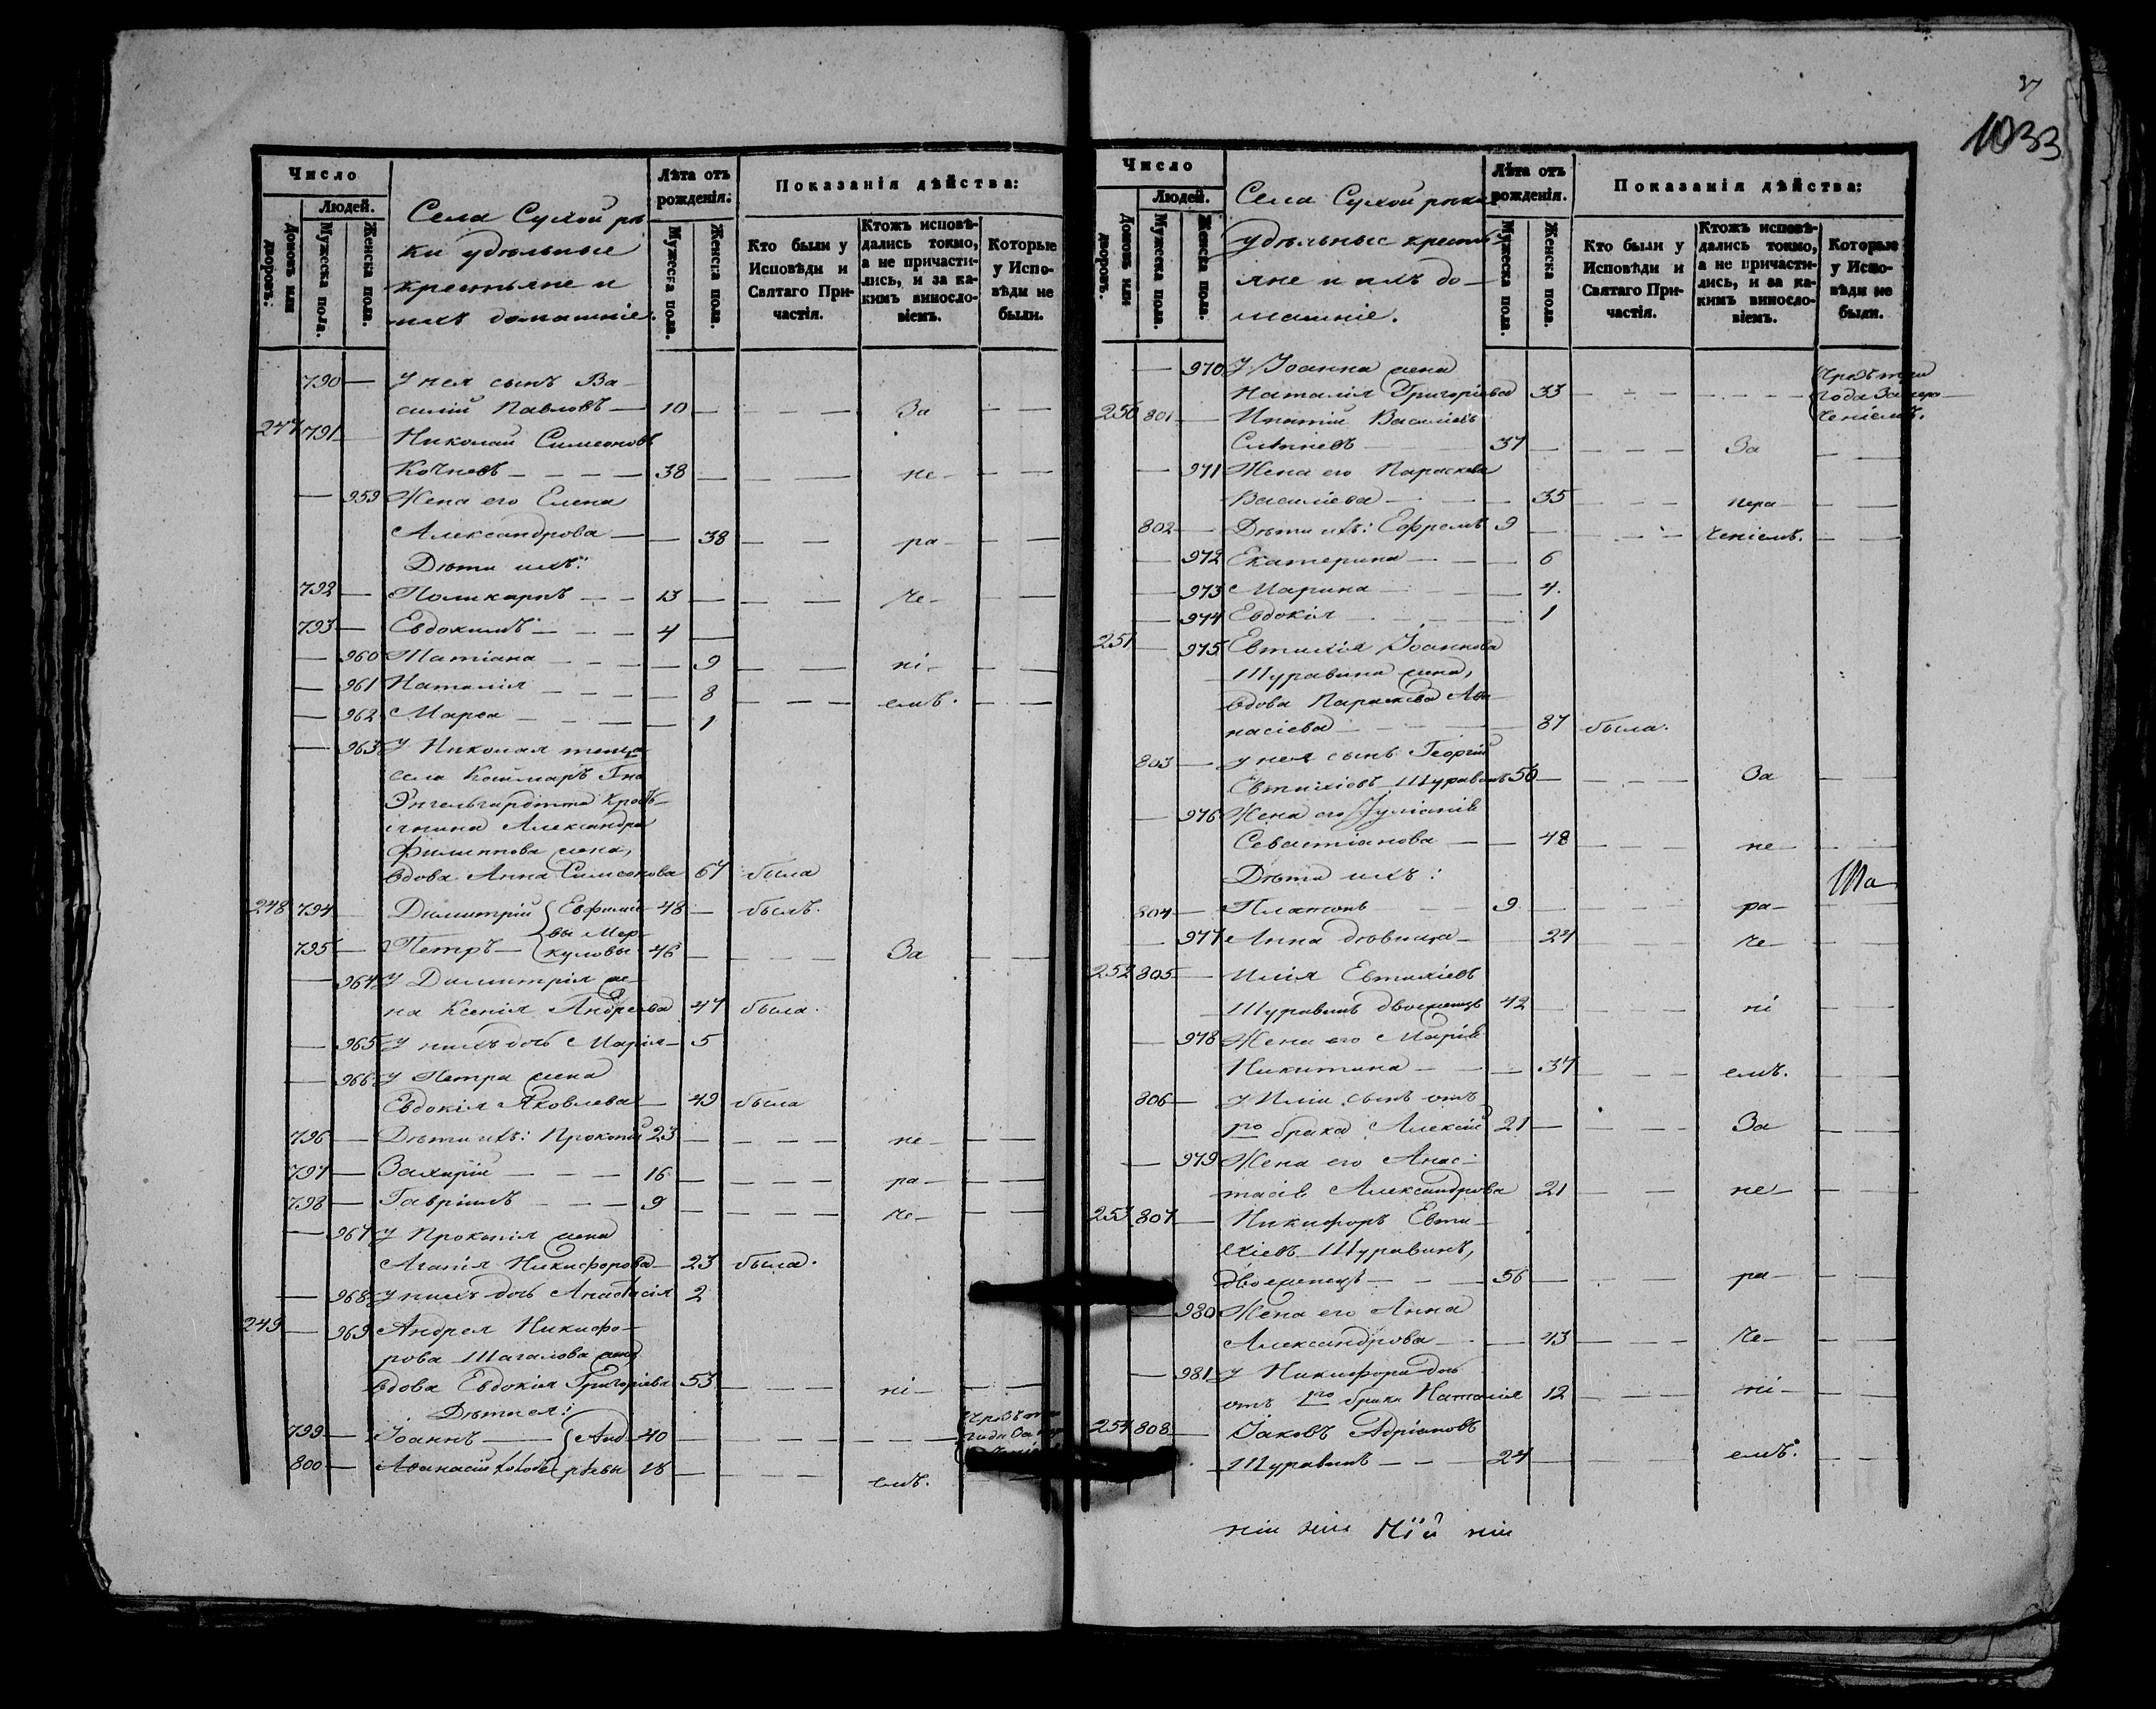 Число
Людей.
Домовъ или дворовъ.
Мужеска пола.
Женска пола.
Села Сухой рѣ-
ки удѣльные
крестьяне и
ихъ домашніе.
Лѣта отъ рожденія.
Мужеска пола.
Женска пола.
Показанія дѣйства:
Кто были у Исповѣди и Святаго При-частія.
Ктожъ исповѣ-дались токмо, а не причасти-лись, и за ка-кимъ винословіемъ.
Которые у Испо-вѣди не были.
790 — У нея сынъ Ва-
силій Павловъ — 10 — За
247 791 — Николай Симеоновъ
Кочневъ — 38 — не-
— 959 Жена его Елена
Александрова — 38 — ра-
Дѣти ихъ:
792 — Поликарпъ — 13 — че-
793 — Евдокимъ — 4 —
— 960 Татіана — 9 — ні-
— 961 Наталія — 8 — емъ.
— 962 Марѳа — 1
— 963 У Николая теща
села Каймаръ Гна
Энгельгардта
Александра
Филиппова жена,
вдова Анна Симеонова 67 была
248 794 Димитрій { Евфиміе- 48 — былъ.
вы Мер-
795 — Петръ — { куловы 46 — За
— 964 У Димитрія же-
на Ксенія Андреева 47 была.
— 965 У нихъ дочь Марія — 5
— 966 У Петра жена
Евдокія Яковлева — 49 была
796 — Дѣти ихъ: Прокопій 23 — не-
797 — Захарій — 16 — ра-
798 — Гавріилъ — 9 — че-
— 967 У Прокопія жена
Агапія Никифорова — 23 была.
— 968 У нихъ дочь Анастасія 2
249 — 969 Андрея Никифо-
рова Шагалова жена
вдова Евдокія Григоріева 53 — ні-
Дѣти ея:
799 — Іоаннъ — { Анд- 40 —
800 — Аѳанасій { реевы 18 — емъ.
1033
Число
Людей.
Домовъ или дворовъ.
Мужеска пола.
Женска пола.
Села Сухой рѣки
удѣльные кресть-
яне и ихъ до-
машніе.
Лѣта отъ рожденія.
Мужеска пола.
Женска пола.
Показанія дѣйства:
Кто были у Исповѣди и Святаго При-частія.
Ктожъ исповѣ-дались токмо, а не причасти-лись, и за ка-кимъ винословіемъ.
Которые у Испо-вѣди не были.
— 970 У Іоанна жена
Наталія Григоріева 33 — Чрезъ три
года За нера-
ченіемъ.
250 801 — Ипатій Василіевъ
37 — За
— 971 Жена его Параскева
Василіева — 35 — нера-
802 — Дѣти ихъ: Ефремъ 9 — ченіемъ.
— 972 Екатерина — 6
— 973 Марина — 4.
— 974 Евдокія — 1
251 — 975 Евтихія Іоаннова
Шуравина жена,
вдова Параскева Аѳа-
насіева — 87 была.
803 — У нея сынъ Георгій
Евтихіевъ Шуравинъ 50 — За
— 976 Жена его Іуліанія
Севастіанова — 48 — не-
Дѣти ихъ:
804 — Платонъ — 9 — ра-
— 977 Анна дѣвица — 24 — че-
252 805 — Илія Евтихіевъ
Шуравинъ двоеженецъ 42 — ні
— 978 Жена его Марія
Никитина — 37 — емъ.
806 — У Иліи сынъ отъ
1го брака Алексій 21 — За
— 979 Жена его Анас-
тасія Александрова 21 — не-
253 807 — Никифоръ Евти-
хіевъ Шуравинъ,
двоеженецъ — 56 — ра-
— 980 Жена его Анна
Александрова — 43 — че-
— 981 У Никифора дочь
отъ 1го брака Наталія 12 — ні-
254 808 — Іаковъ Адріановъ
Шуравинъ — 24 — емъ.